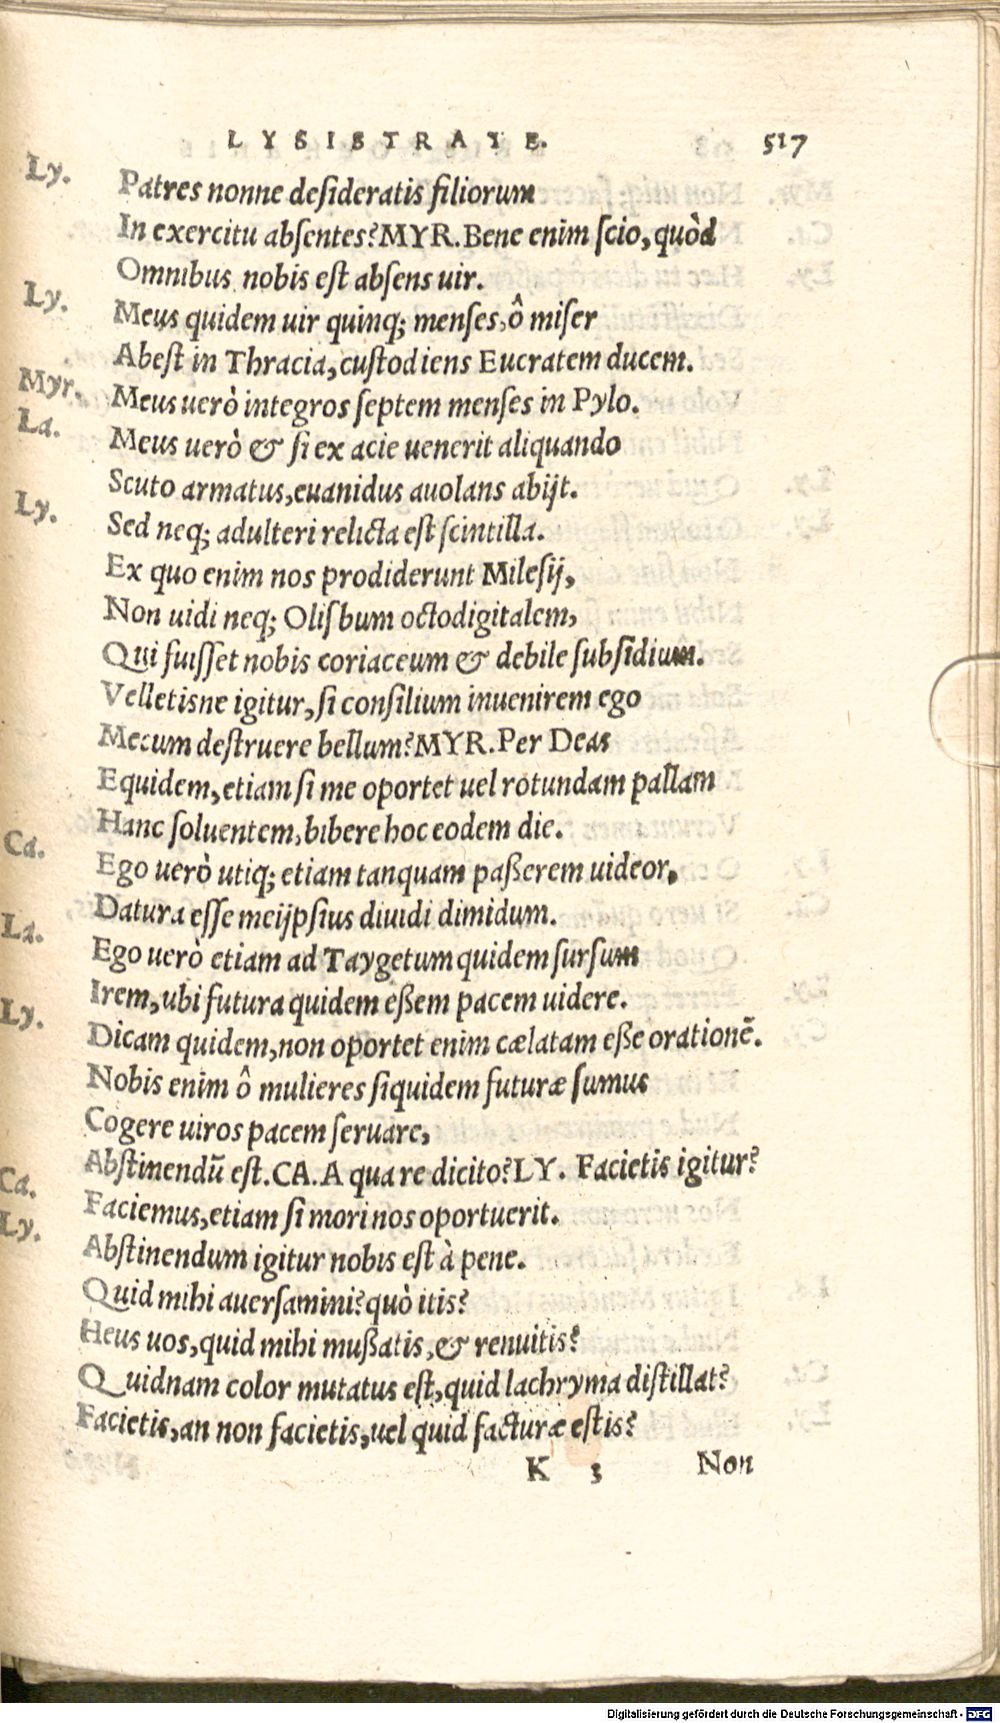 LYSISTRATE. 517
Ly. Patres nonne desideratis filiorum
In exercitu absentes? MYR. Bene enim scio, quòd
Omnibus nobis est absens uir.
Ly. Meus quidem uir quinq; menses, ô miser
Abest in Thracia, custodiens Eucratem ducem.
Myr. Meus uerò integros septem menses in Pylo.
La. Meus uerò & si ex acie uenerit aliquando
Scuto armatus, euanidus auolans abijt.
Ly. Sed neq; adulteri relicta est scintilla.
Ex quo enim nos prodiderunt Milesij,
Non uidi neq; Olisbum octodigitalem,
Qui fuisset nobis coriaceum & debile subsidium.
Velletisne igitur, si consilium inuenirem ego
Mecum destruere bellum? MYR. Per Deas
Equidem, etiam si me oportet uel rotundam pallam
Hanc soluentem, bibere hoc eodem die.
Ca. Ego uerò utiq; etiam tanquam passerem uideor,
Datura esse meijpsius diuidi dimidum.
La. Ego uerò etiam ad Taygetum quidem sursum
Irem, ubi futura quidem essem pacem uidere.
Ly. Dicam quidem, non oportet enim cælatam esse orationē.
Nobis enim ô mulieres siquidem futuræ sumus
Cogere uiros pacem seruare,
Abstinendū est. CA. A qua re dicito? LY. Facietis igitur?
Ca. Faciemus, etiam si mori nos oportuerit.
Ly. Abstinendum igitur nobis est à pene.
Quid mihi auersamini? quò itis?
Heus uos, quid mihi mussatis, & renuitis?
Quidnam color mutatus est, quid lachryma distillat?
Facietis, an non facietis, uel quid facturæ estis?
K 3 Non
Digitalisierung gefördert durch die Deutsche Forschungsgemeinschaft - DFG